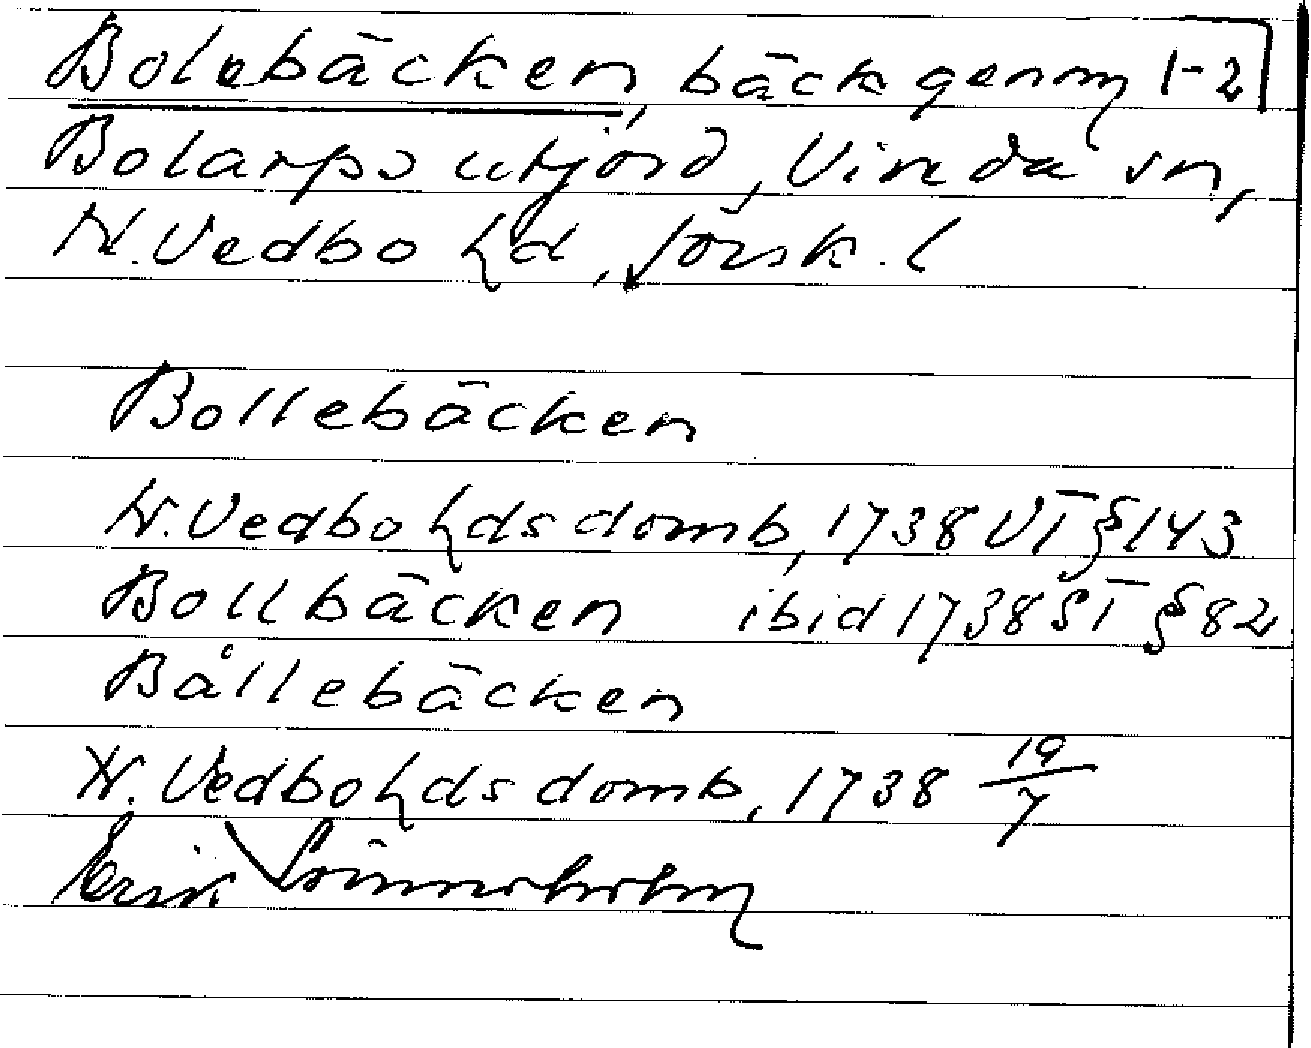 Bolebäcken, bäck genom 1-2
Bolarps utjord, Vireda sn,
N. Vedbo hd, Jönsk. l
Bollebäcken
N. Vedbo hds domb, 1738 VT § 143
Bollbäcken ibid 1738 ST § 82
Bållebäcken
N. Vedbo hds domb, 1738 19/7
Erik Linneholm